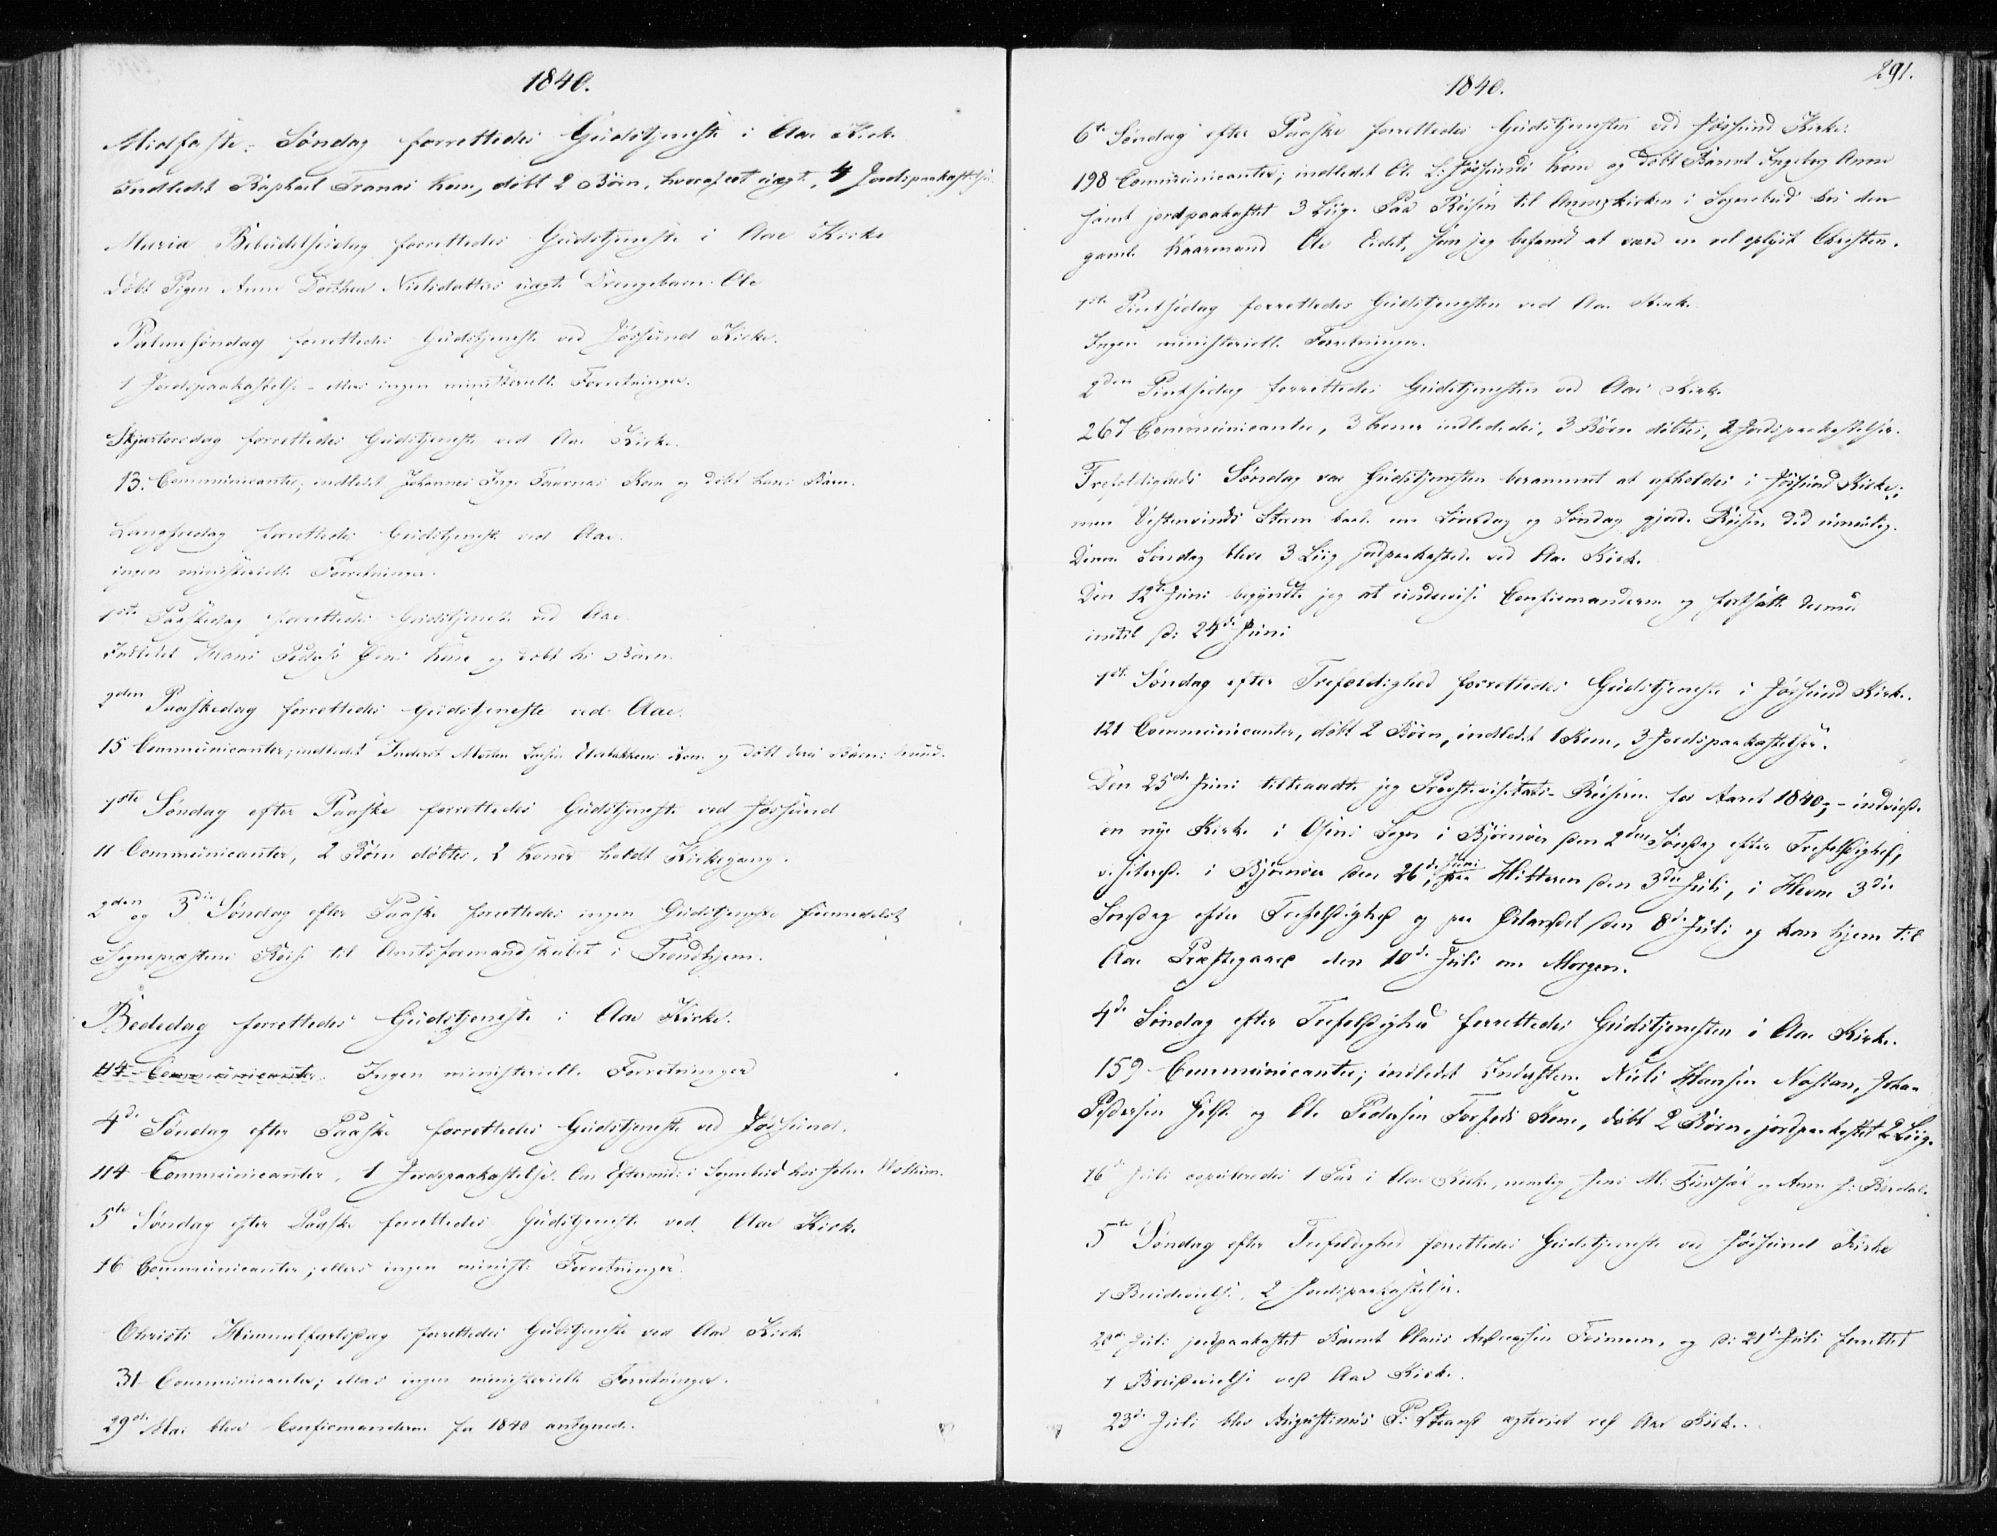 1840.
Midfaste-Søndag forrettedes Gudstjeneste i Aae Kirke
Indledet Raphael Tranas Kone, døbt 2 Børn, hvoraf et uægte, 4 Jordspaakastelser.
Maria Bebudelsesdag forrettedes Gudstjeneste i Aae Kirke
døbt Pigen Anne Dorthea Nielsdatters uægte Drengebarn Ole
Palmesøndag forrettedes Gudstjeneste ved Jøssund Kirke.
1 Jordspaakastelse - ellers ingen ministerielle Forretninger.
Skjærtorsdag forrettedes Gudstjeneste ved Aae Kirke.
13 Communicanter, indledet Johannes Kone og døbt hans Barn.
Langfredag forrettedes Gudstjeneste ved Aae.
ingen ministerielle Forretninger.
1ste Paaskedag forrettedes Gudstjeneste ved Aae.
Indledet Kone og døbt Barn.
2den Paaskedag forrettedes Gudstjeneste ved Aae.
15 Communicanter, indledet Inderst Morten Kone og døbt deres Barn:
1ste Søndag efter Paaske forrettedes Gudstjeneste ved Jøssund
11 Communicanter, 2 Børn døbtes, 2 Koner holdt Kirkegang.
2den og 3die Søndag efter Paaske forrettedes ingen Gudstjeneste formedelst
Sognepræstens Reise til Amtsformandskabet i Trondhjem.
Bededag forrettedes Gudstjeneste i Aae Kirke.
114 Communicanter. Ingen ministerielle Forretninger
4de Søndag efter Paaske forrettedes Gudstjeneste ved Jøssund.
114 Communicanter, 1 Jordspaakastelse. Om Efterm: i Sognebud hos
5te Søndag efter Paaske forrettedes Gudstjeneste ved Aae Kirke
16 Communicanter; ellers ingen minist: Forretninger.
Christi Himmelfartsdag forrettedes Gudstjeneste ved Aae Kirke
31 Communicanter; ellers ingen ministerielle Forretninger.
29de Mai bleve Confirmanderne for 1840 antegnede.
291.
1840.
6te Søndag efter Paaske forrettedes Gudstjenesten ved Jøssund Kirke.
198 Communicanter; indledet Ole L. Jøssunds Kone og døbt Barnet Ingeborg Anne
samt jordpaakastet 3 Liig. Paa Reisen til Annexkirken i Sognebud hos den
gamle Kaarmand Ole Eidet, som jeg befandt at være en vel oplyst Christen.
1ste Pintsedag forrettedes Gudstjenesten ved Aae Kirke
Ingen ministerielle Forretninger.
2den Pintsedag forrettedes Gudstjenesten ved Aae Kirke
267 Communicanter, 3 Koner indlededes, 3 Børn døbtes, 2 Jordspaakastelser.
Trefoldigheds Søndag var Gudstjenesten berammet at afholdes i Jøssund Kirke;
men Vestenvinds Storm baade om Løverdag og Søndag gjorde Reisen did umulig.
Denne Søndag bleve 3 Liig jordpaakastede ved Aae Kirke.
Den 12te Juni begyndte jeg at undervise Confirmanderne og fortsatte dermed
indtil d: 24de Juni
1ste Søndag efter Trefoldighed forrettedes Gudstjeneste i Jøssund Kirke.
121 Communicanter, døbt 2 Børn, indledet 1 Kone, 3 Jordspaakastelser.
Den 25de Juni tiltraadte jeg Provstevisitats-Reiserne for Aaret 1840; - indviede
en nye Kirke i Osens Sogn i Bjørnør den 2den Søndag efter Trefoldighed,
visiterede i Bjørnør den 26de Juni, paa Hitteren den 3die Juli, i Hevne 3die
Søndag efter Trefoldighed og paa Ørlandet den 8de Juli og kom hjem til
Aae Præstegaard den 10de Juli om Morgen.
4de Søndag efter Trefoldighed forrettedes Gudstjenesten i Aae Kirke.
159 Communicanter; indledet Inderstene Niels Hansen Johan
Pedersen og Ole Pedersen Kone, døbt 2 Børn, jordpaakastet 2 Liig.
16de Juli copuleredes 1 Par i Aae Kirke, nemlig Jens M. og Anne J:
5te Søndag efter Trefoldighed forrettedes Gudstjeneste ved Jøssund Kirke
1 Brudevielse, 2 Jordspaakastelser.
20de Juli jordpaakastet Barnet og d: 21de Juli forrettet
1 Brudevielse ved Aae Kirke.
23de Juli blev Augustinus P: Strand ægteviet ved Aae Kirke.